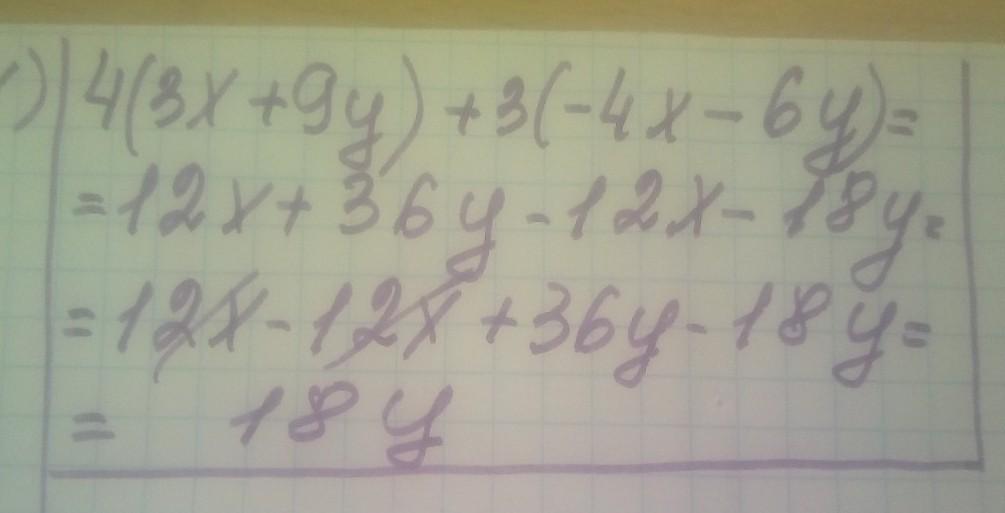 ) 4(3x+9y)+3(-4x-6y)=
=12x+36y-12x-18y=
=12x-12x+36y-18y=
= 18y